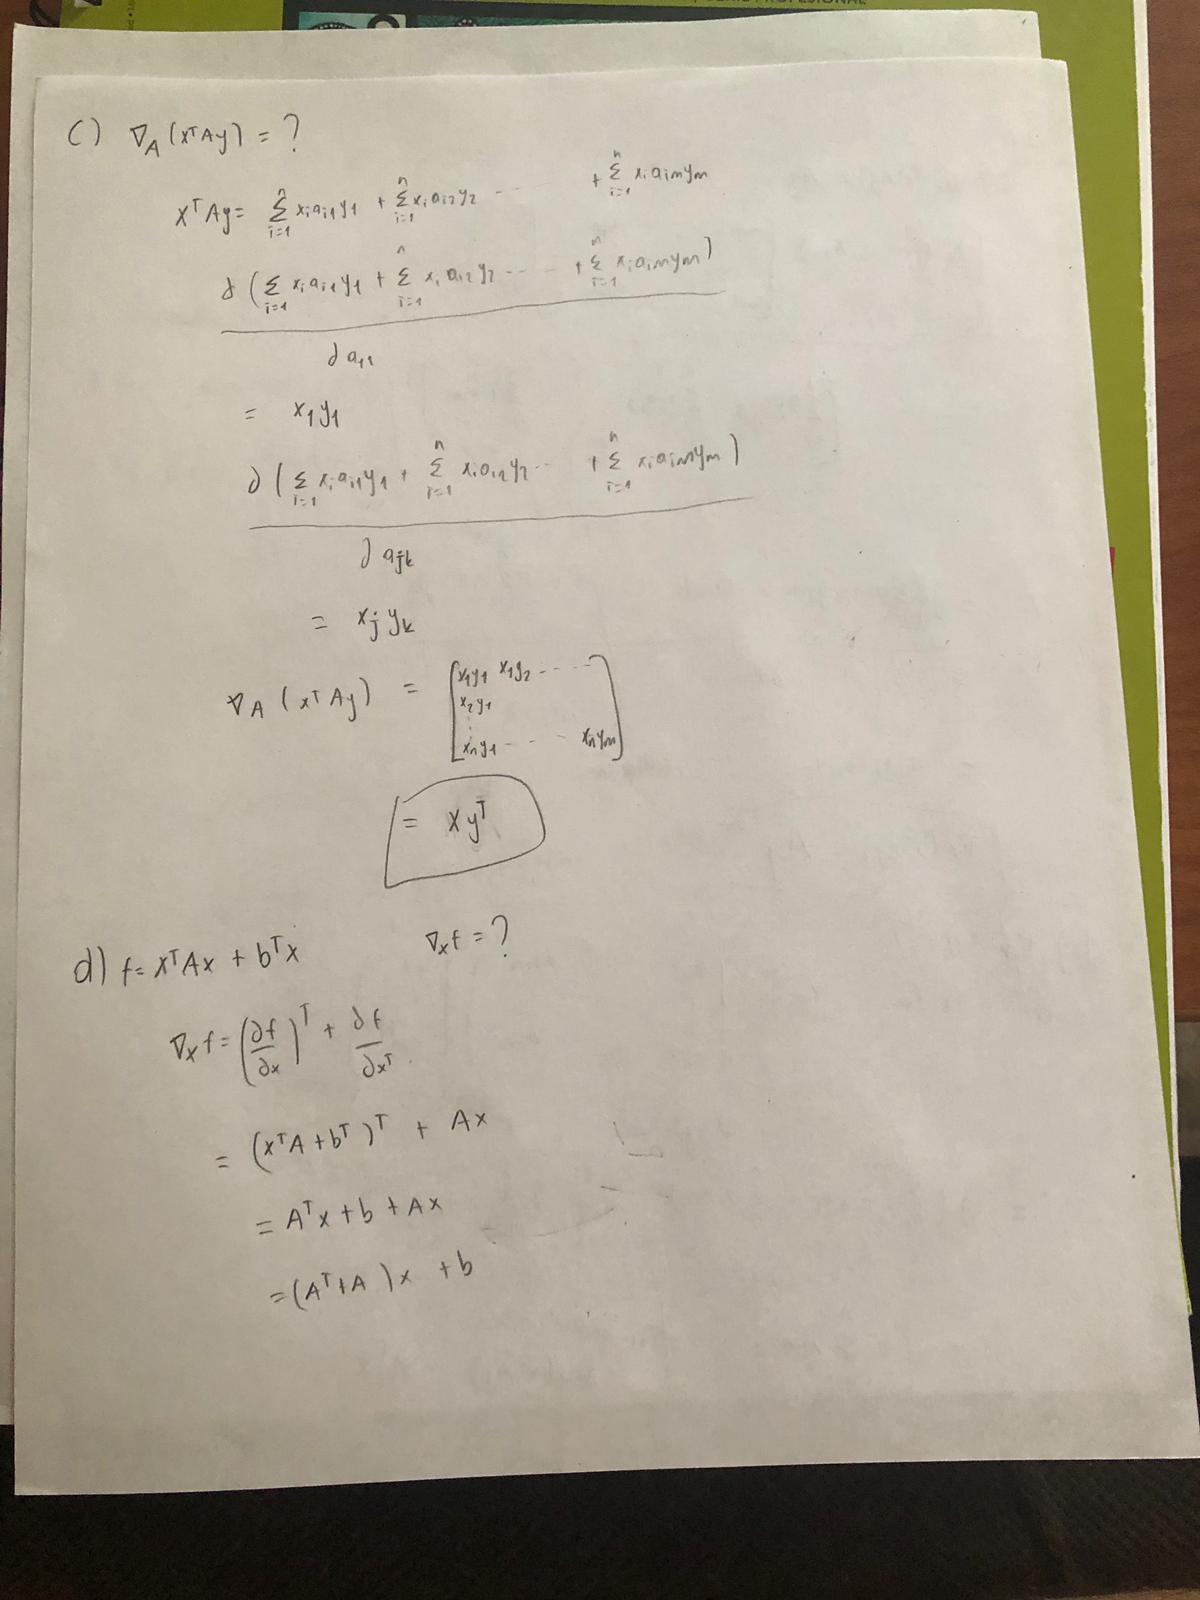 SERIE PROFESIONAL
c) ∇_A (xᵀAy) = ?
xᵀAy = Σ_{i=1}^{n} x_i a_{i1} y_1 + Σ_{i=1}^{n} x_i a_{i2} y_2 ---- + Σ_{i=1}^{n} x_i a_{im} y_m
∂ ( Σ_{i=1}^{n} x_i a_{i1} y_1 + Σ_{i=1}^{n} x_i a_{i2} y_2 ---- + Σ_{i=1}^{n} x_i a_{im} y_m )
∂ a_{11}
= x_1 y_1
∂ ( Σ_{i=1} x_i a_{i1} y_1 + Σ_{i=1}^{n} x_i a_{i2} y_2 --- + Σ_{i=1}^{n} x_i a_{im} y_m )
∂ a_{jk}
= x_j y_k
∇_A (xᵀAy) = [ x_1y_1 x_1y_2 ----
x_2y_1
x_ny_1 ---- x_ny_m ]
= xyᵀ
d) f = xᵀAx + bᵀx ∇_x f = ?
∇_x f = (∂f/∂x)ᵀ + ∂f/∂xᵀ
= (xᵀA + bᵀ)ᵀ + Ax
= Aᵀx + b + Ax
= (Aᵀ + A)x + b